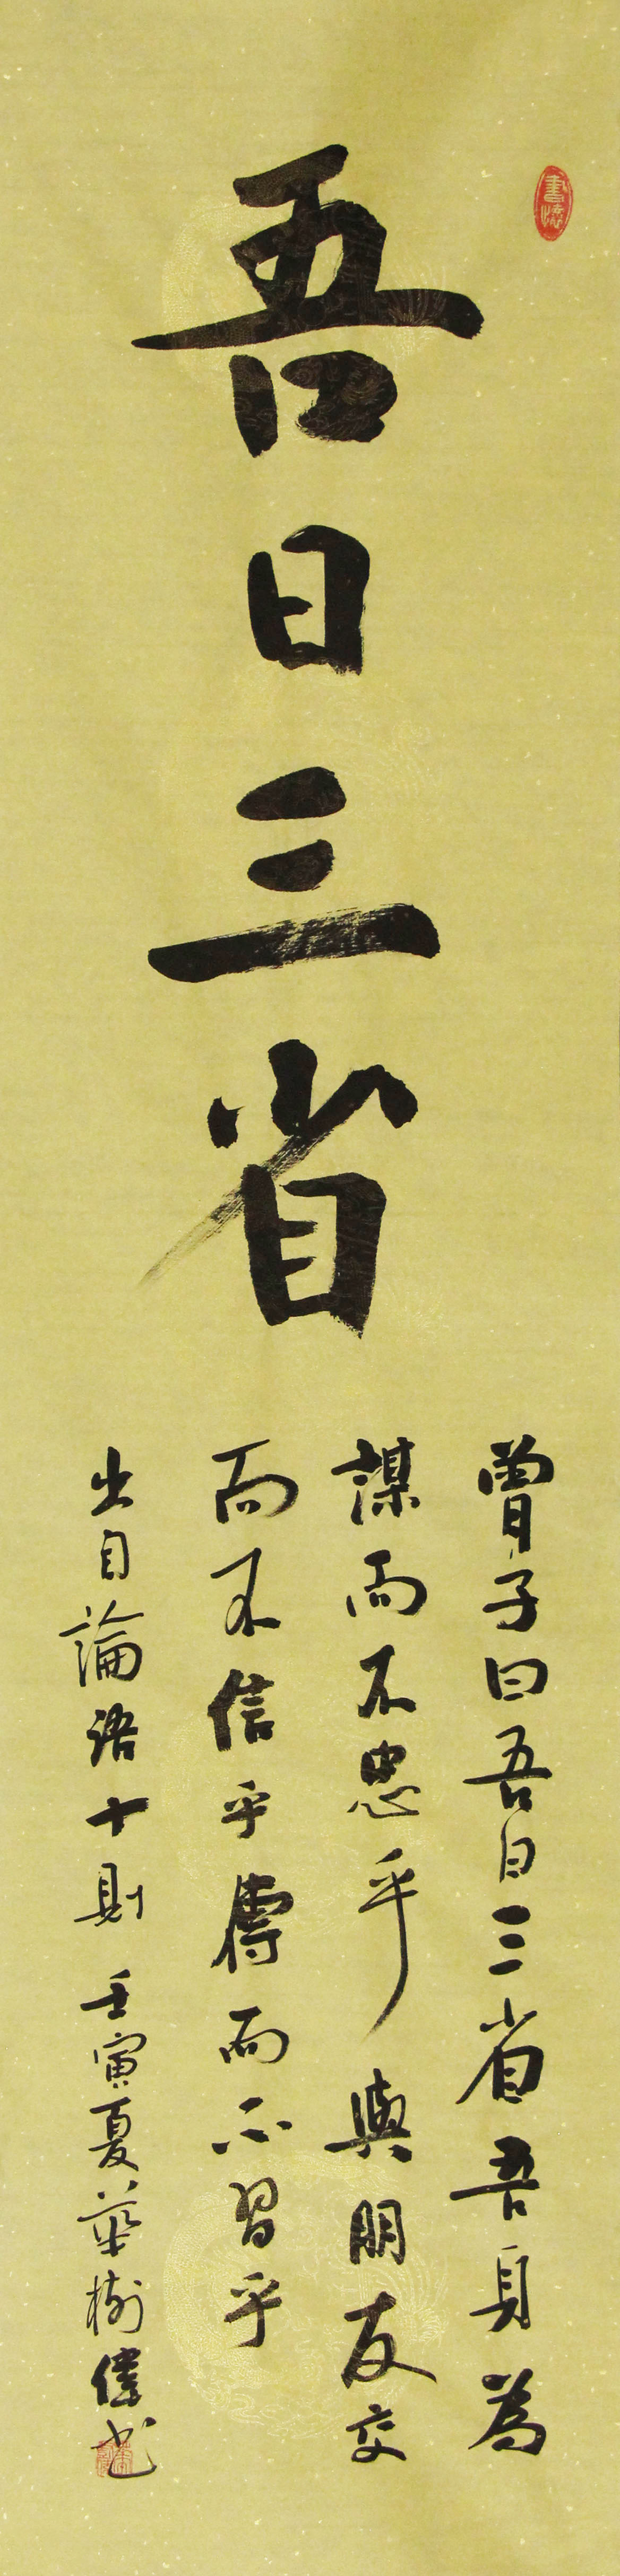 吾日三省
曾子曰吾日三省吾身為
謀而不忠乎與朋友交
而不信乎傳而不習乎
出自論語十則 壬寅夏華樹偉书